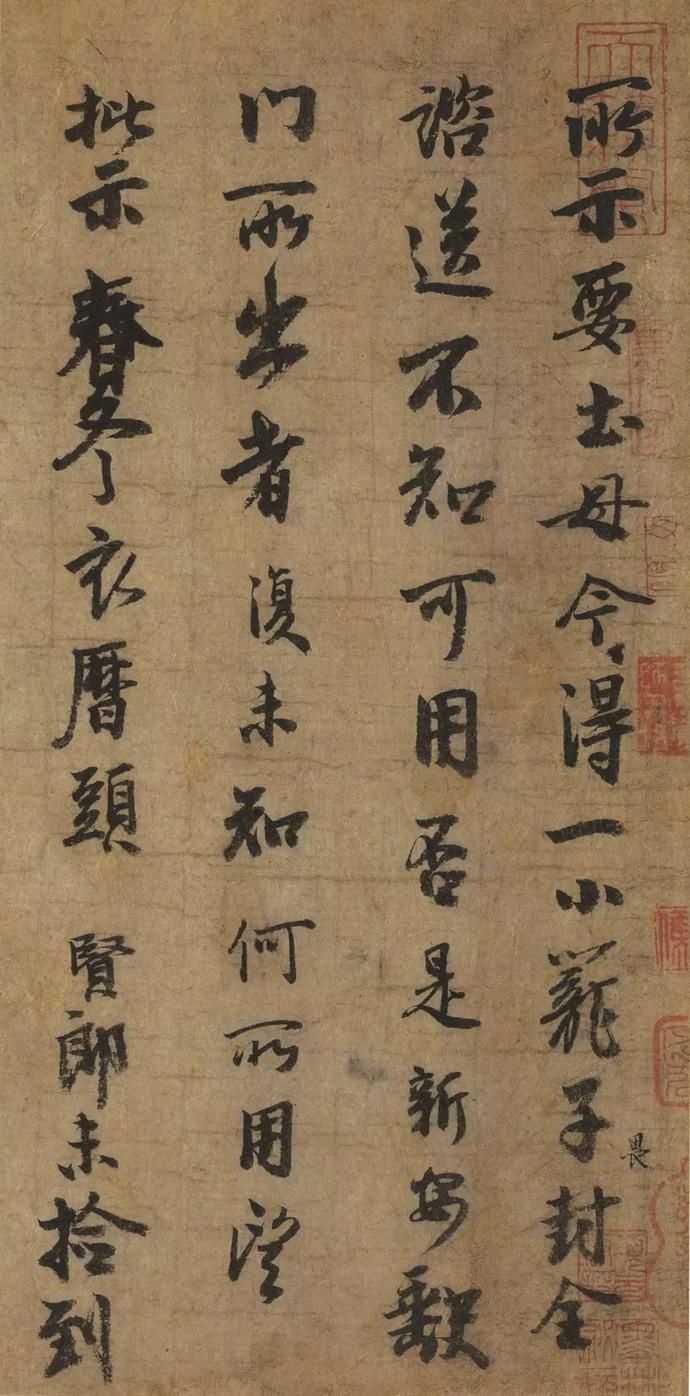 所示要土母今得一小籠子封全
畏
諮送不知可用否是新安缺
門所出者復未知何所用望
批示春冬衣曆頭 賢郎未拾到